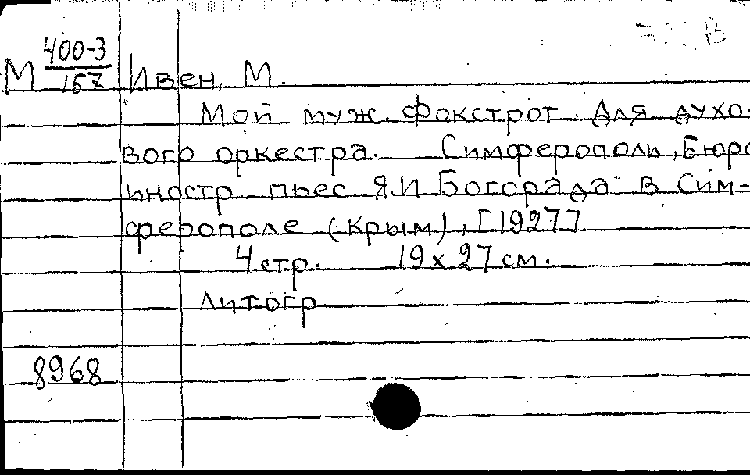 М 400-3/157 Ивен, М.
Мой муж. Фокстрот для духо-
вого оркестра. Симферополь, Бюро
иностр. пьес Я.И. Богорада в Сим-
ферополе (Крым), [1927]
4 стр. 19 x 27 см.
Литогр
8968